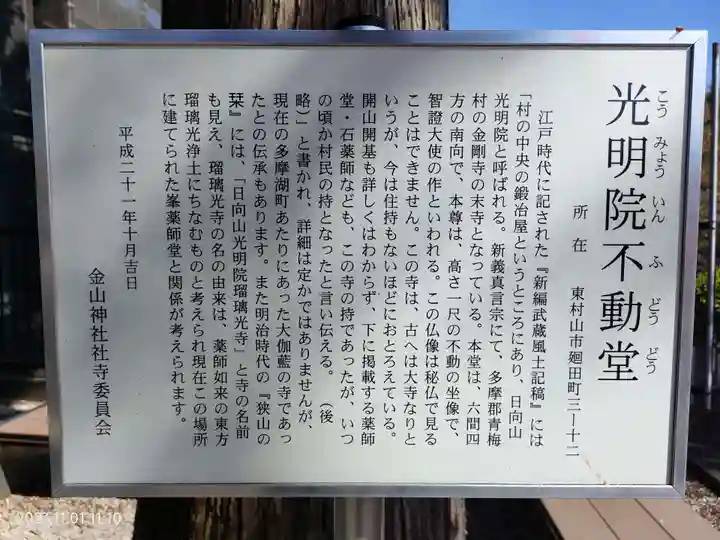 光明院不動堂
こう みょう いん ふ どう どう
所在 東村山市廻田町三ー十二
江戸時代に記された『新編武蔵風土記稿』には
「村の中央の鍛冶屋というところにあり、日向山
光明院と呼ばれる。新義真言宗にて、多摩郡青梅
村の金剛寺の末寺となっている。本堂は、六間四
方の南向で、本尊は、高さ一尺の不動の坐像で、
智證大使の作といわれる。この仏像は秘仏で見る
ことはできません。この寺は、古へは大寺なりと
いうが、今は住持もないほどにおとろえている。
開山開基も詳しくはわからず、下に掲載する薬師
堂・石薬師なども、この寺の持であったが、いつ
の頃か村民の持となったと言い伝える。（後
略）」と書かれ、詳細は定かではありませんが、
現在の多摩湖町あたりにあった大伽藍の寺であっ
たとの伝承もあります。また明治時代の『狭山の
栞』には、「日向山光明院瑠璃光寺」と寺の名前
も見え、瑠璃光寺の名の由来は、薬師如来の東方
瑠璃光浄土にちなむものと考えられ現在この場所
に建てられた峯薬師堂と関係が考えられます。
平成二十一年十月吉日
金山神社社寺委員会